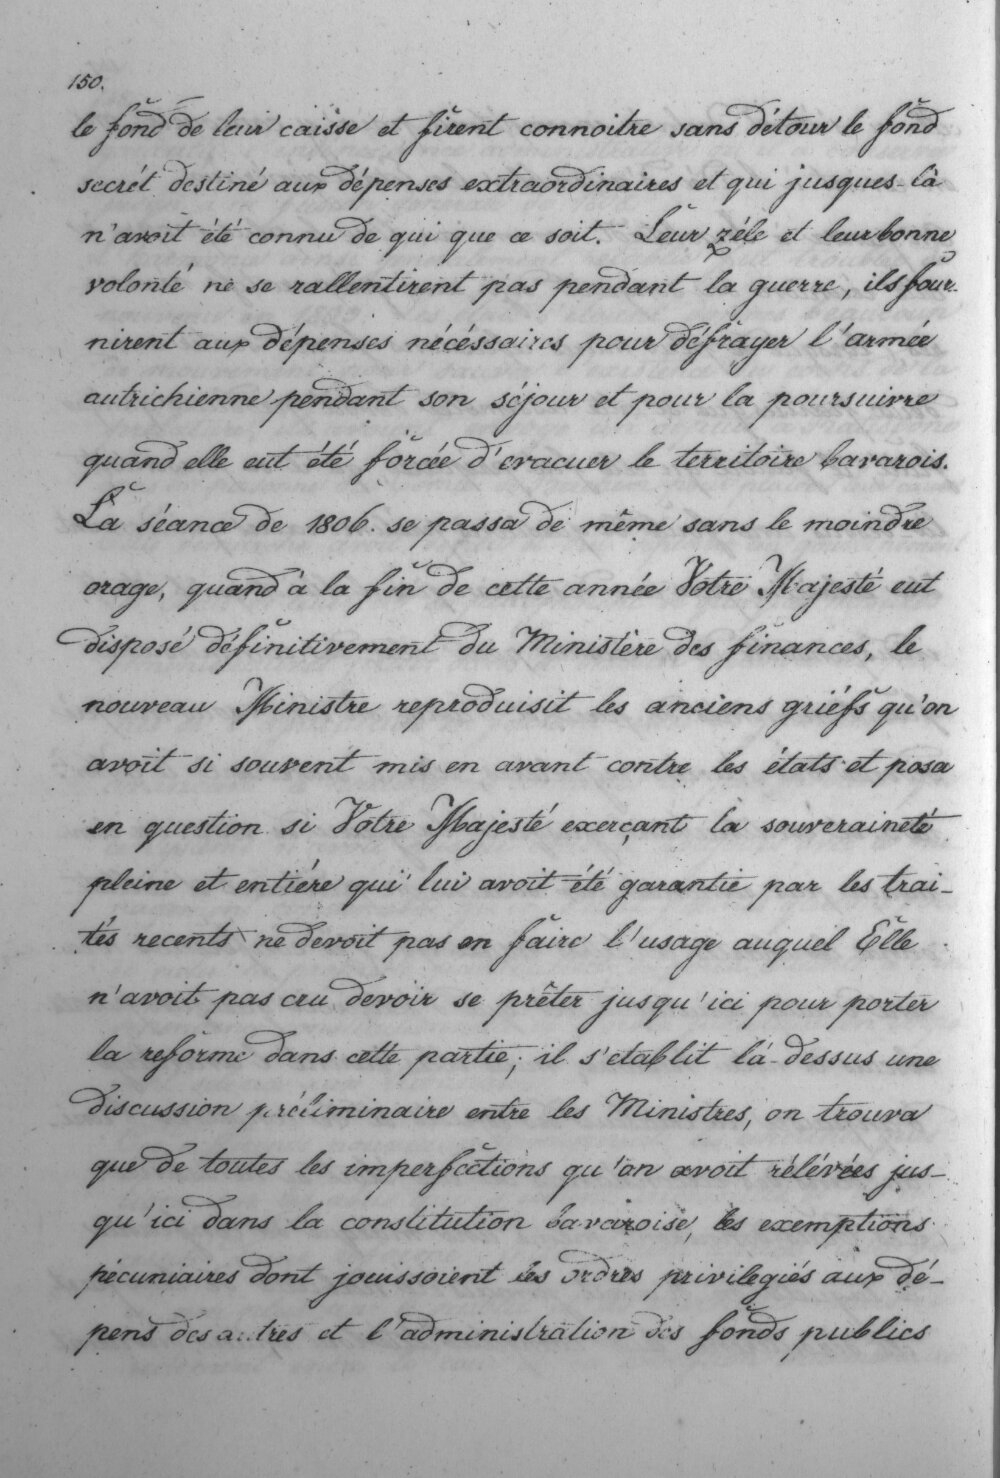 150.
le fond de leur caisse et firent connoitre sans détour le fond
secrét destiné aux dépenses extraordinaires et qui jusques-là
n'avoit été connu de qui que ce soit. Leur zéle et leur bonne
volonté ne se rallentirent pas pendant la guerre, ils four-
nirent aux dépenses nécéssaires pour défrayer l'armée
autrichienne pendant son séjour et pour la poursuivre
quand elle eut été forcée d'evacuer le territoire bavarois.
La séance de 1806. se passa de même sans le moindre
orage, quand à la fin de cette année Votre Majesté eut
disposé définitivement du Ministère des finances, le
nouveau Ministre reproduisit les anciens griéfs qu'on
avoit si souvent mis en avant contre les états et posa
en question si Votre Majesté exerçant la souveraineté
pleine et entiére qui lui avoit été garantie par les trai-
tés recents ne devoit pas en faire l'usage auquel Elle
n'avoit pas cru devoir se prêter jusqu'ici pour porter
la reforme dans cette partie; il s'etablit là-dessus une
discussion préliminaire entre les Ministres, on trouva
que de toutes les imperfections qu'on avoit rélévées jus-
qu'ici dans la constitution bavaroise, les exemptions
pécuniaires dont jouissoient les ordres privilegiés aux dé-
pens des autres et l'administration des fonds publics